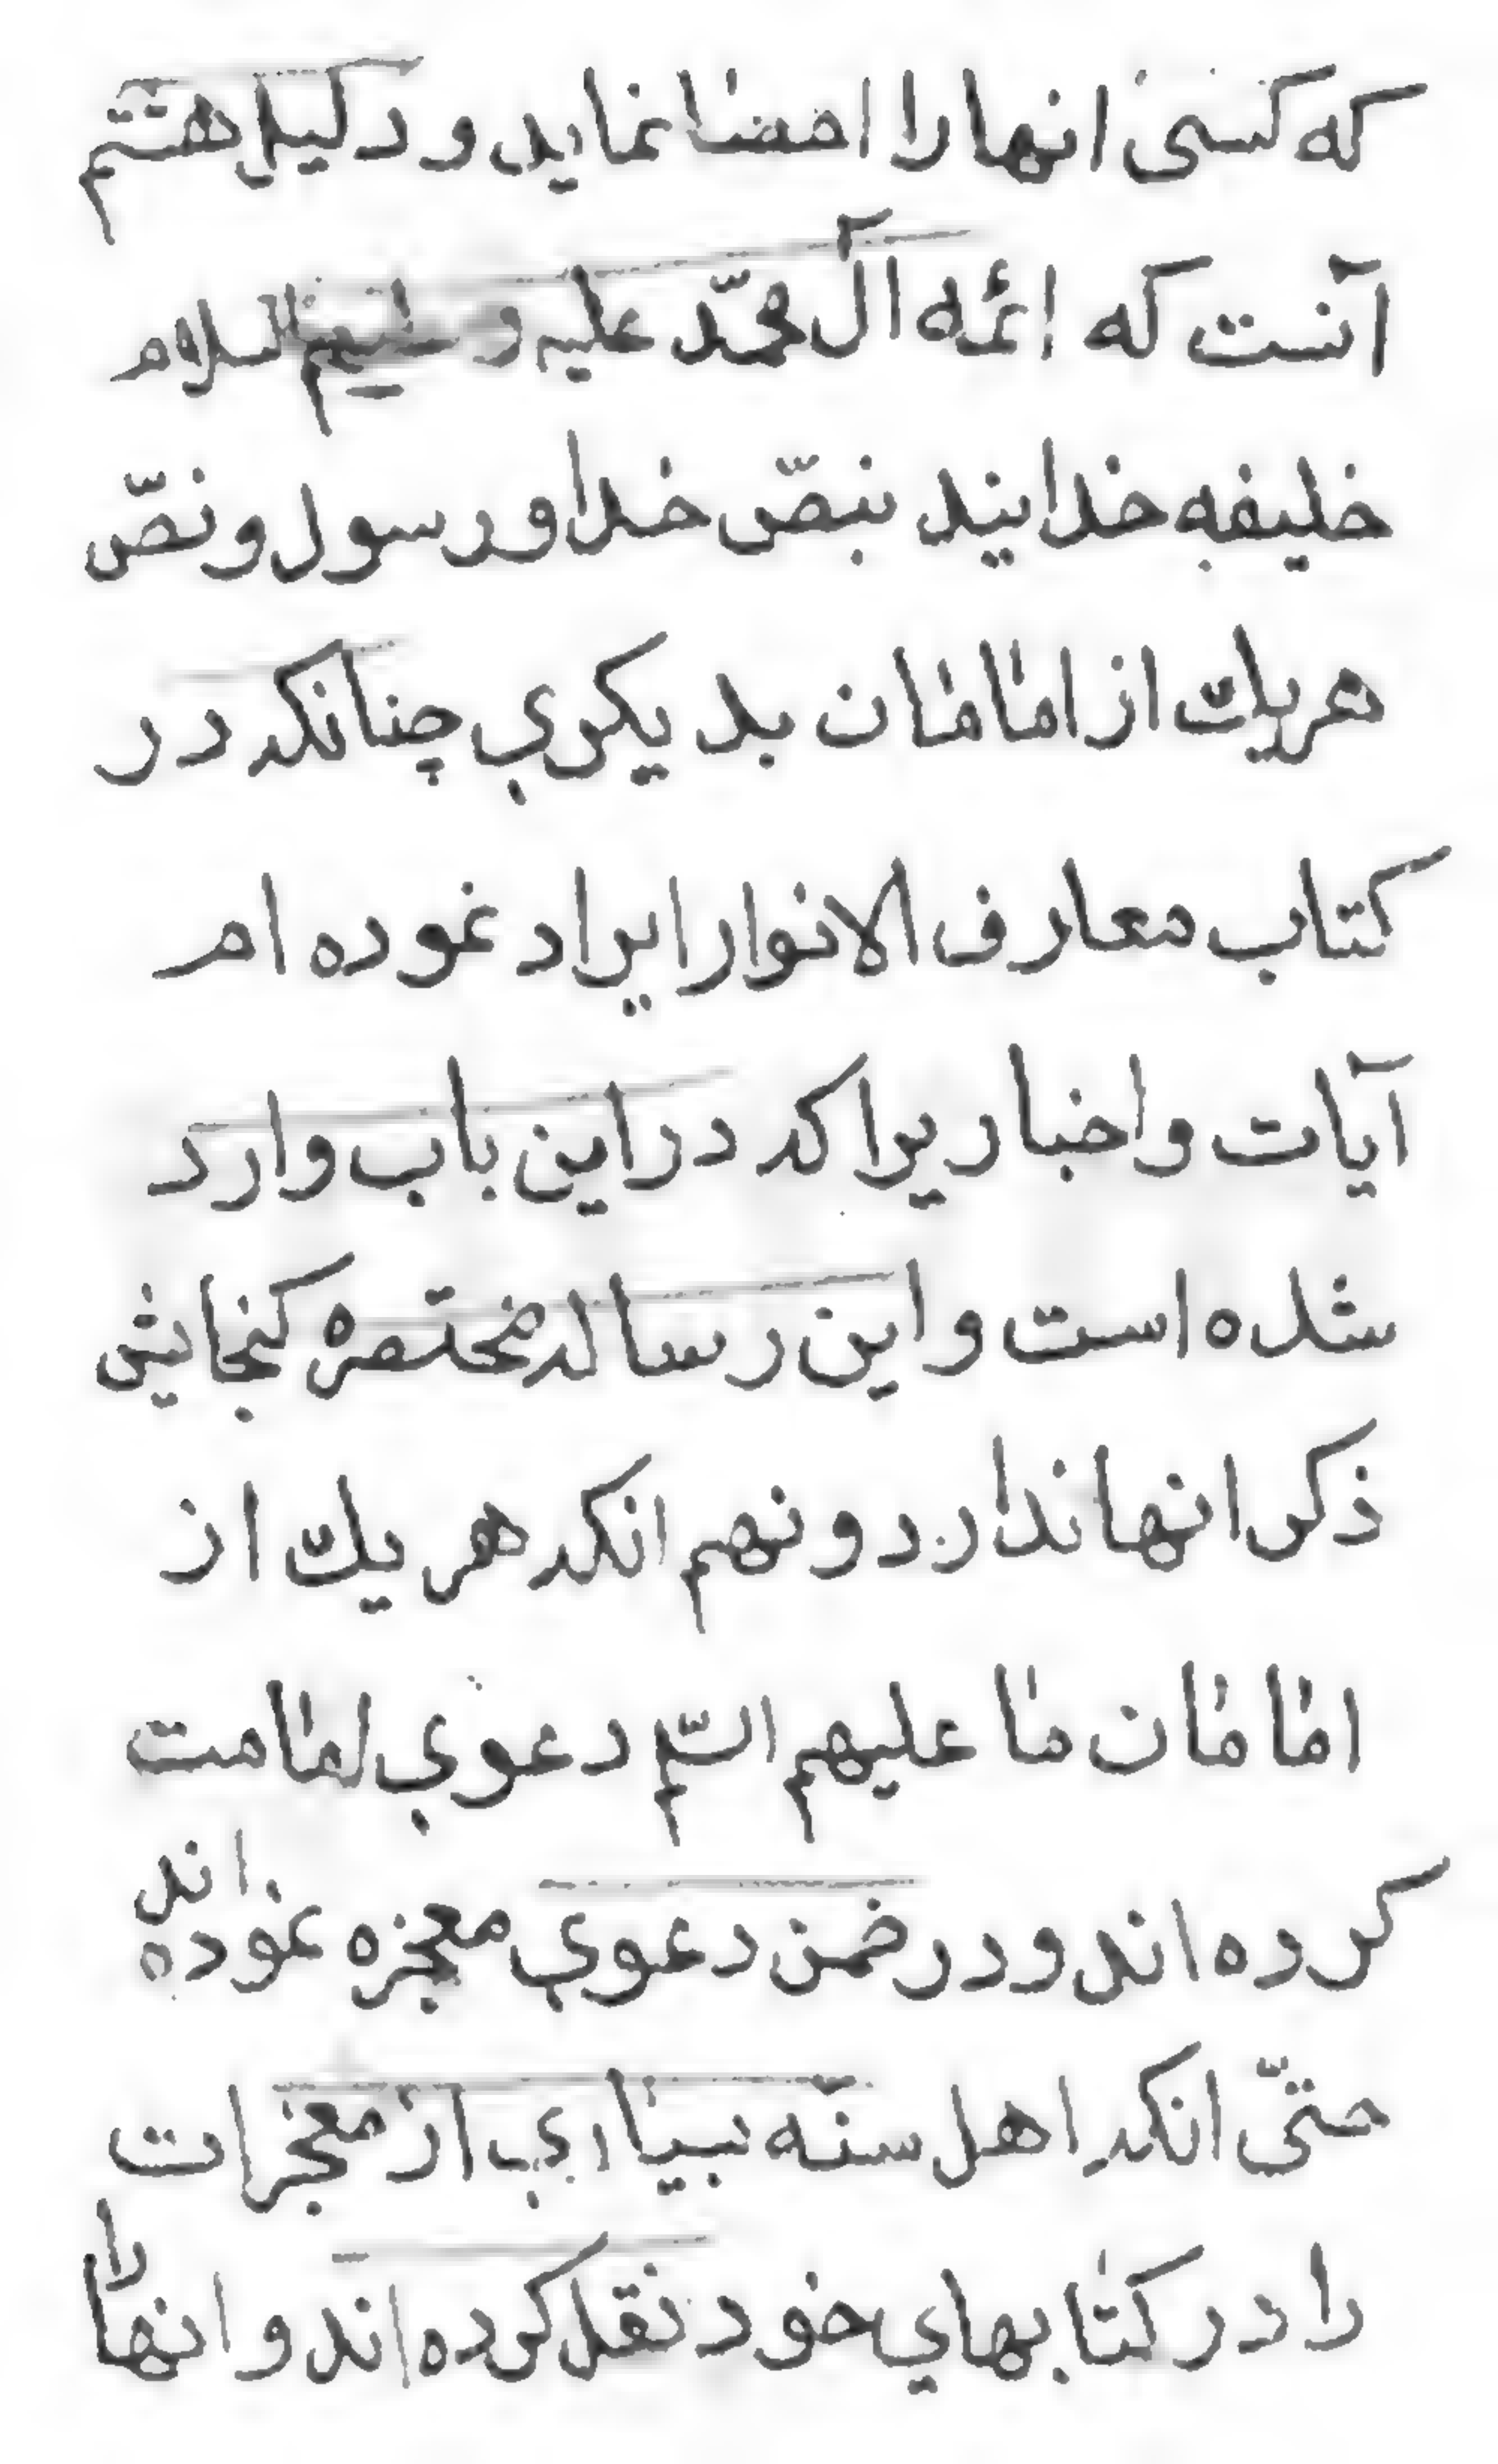 که کسی انها را امضا نماید و دلیل هشتم
آنست که ائمه آل محمّد علیه و علیهم السلام
خلیفه خدایند بنصّ خدا و رسول و نصّ
هریك از امامان بدیکری چنانکه در
کتاب معارف الانوار ایراد نموده ام
آیات و اخباریرا که در این باب وارد
شده است و این رساله مختصره کنجایش
ذکر انها ندارد و نهم انکه هر یك از
امامان ما علیهم السّم دعوي امامت
کرده اند و در ضمن دعوي معجزه نموده اند
حتّی انکه اهل سنّه بسیاري از معجزات
را در کتابهاي خود نقل کرده اند و انها را